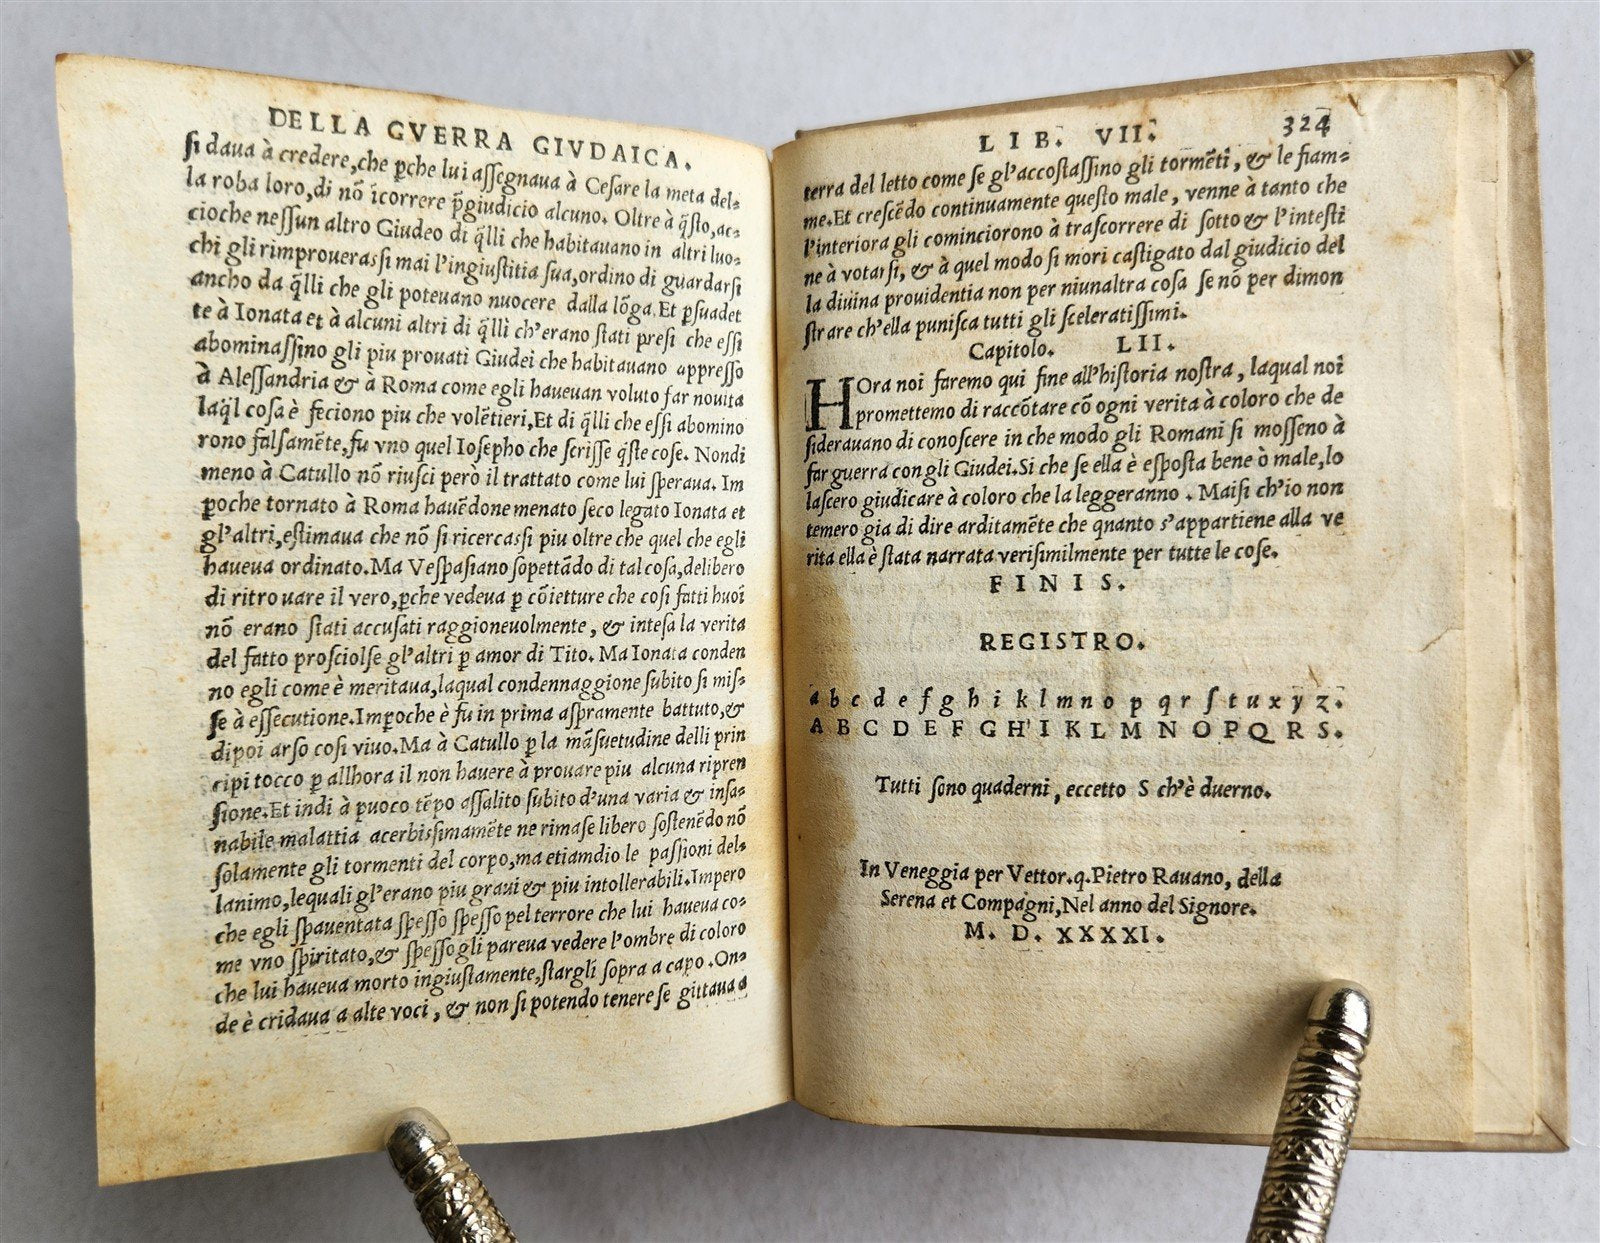 DELLA GVERRA GIVDAICA.
si daua à credere, che ꝑche lui assegnaua à Cesare la meta del-
la roba loro, di nõ ĩcorrere p̃giudicio alcuno. Oltre à q̃sto, ac-
cioche nessun altro Giudeo di q̃lli che habitauano in altri luo-
chi gli rimprouerassi mai l'ingiustitia sua, ordino di guardarsi
ancho da q̃lli che gli poteuano nuocere dalla lõga. Et ꝑsuadet
te à Ionata et à alcuni altri di q̃lli ch'erano stati presi che essi
abominassino gli piu prouati Giudei che habitauano appresso
à Alessandria & à Roma come egli haueuan voluto far nouita
laq̃l cosa è feciono piu che volẽtieri, Et di q̃lli che essi abomino
rono falsamẽte, fu vno quel Iosepho che scrisse q̃ste cose. Nondi
meno à Catullo nõ riusci però il trattato come lui speraua. Im
ꝑoche tornato à Roma hauẽdone menato seco legato Ionata et
gl'altri, estimaua che nõ si ricercassi piu oltre che quel che egli
haueua ordinato. Ma Vespasiano sopettãdo di tal cosa, delibero
di ritrouare il vero, ꝑche vedeua ꝑ cõietture che cosi fatti huoĩ
nõ erano stati accusati raggioneuolmente, & intesa la verita
del fatto prosciolse gl'altri ꝑ amor di Tito. Ma Ionata conden
no egli come è meritaua, laqual condennaggione subito si mis-
se à essecutione. Imꝑoche è fu in prima aspramente battuto, &
dipoi arso cosi viuo. Ma à Catullo ꝑ la mãsuetudine delli prin
cipi tocco ꝑ allhora il non hauere à prouare piu alcuna ripren
sione. Et indi à puoco tẽpo assalito subito d'una varia & insa-
nabile malattia acerbissimamẽte ne rimase libero sostenẽdo nõ
solamente gli tormenti del corpo, ma etiamdio le passioni del-
lanimo, lequali gl'erano piu graui & piu intollerabili. Impero
che egli spauentata spesso spesso pel terrore che lui haueua co-
me vno spiritato, & spesso gli pareua vedere l'ombre di coloro
che lui haueua morto ingiustamente, stargli sopra a capo. On-
de è cridaua a alte voci, & non si potendo tenere se gittaua a
LIB. VII. 324
terra del letto come se gl'accostassino gli tormẽti, & le fiam-
me. Et crescẽdo continuamente questo male, venne à tanto che
l'interiora gli cominciorono à trascorrere di sotto & l'intesti
ne à votarsi, & à quel modo si mori castigato dal giudicio del
la diuina prouidentia non per niunaltra cosa se nõ per dimon
strare ch'ella punisca tutti gli sceleratissimi.
Capitolo. LII.
HOra noi faremo qui fine all'historia nostra, laqual noi
promettemo di raccõtare cõ ogni verita à coloro che de
siderauano di conoscere in che modo gli Romani si mosseno à
far guerra con gli Giudei. Si che se ella è esposta bene ò male, lo
lascero giudicare à coloro che la leggeranno. Maisi ch'io non
temero gia di dire arditamẽte che quanto s'appartiene alla ve
rita ella è stata narrata verisimilmente per tutte le cose.
FINIS.
REGISTRO.
a b c d e f g h i k l m n o p q r ſ t u x y z.
A B C D E F G H I K L M N O P Q R S.
Tutti sono quaderni, eccetto S ch'è duerno.
In Veneggia per Vettor. q. Pietro Rauano, della
Serena et Compagni, Nel anno del Signore.
M. D. XXXXI.